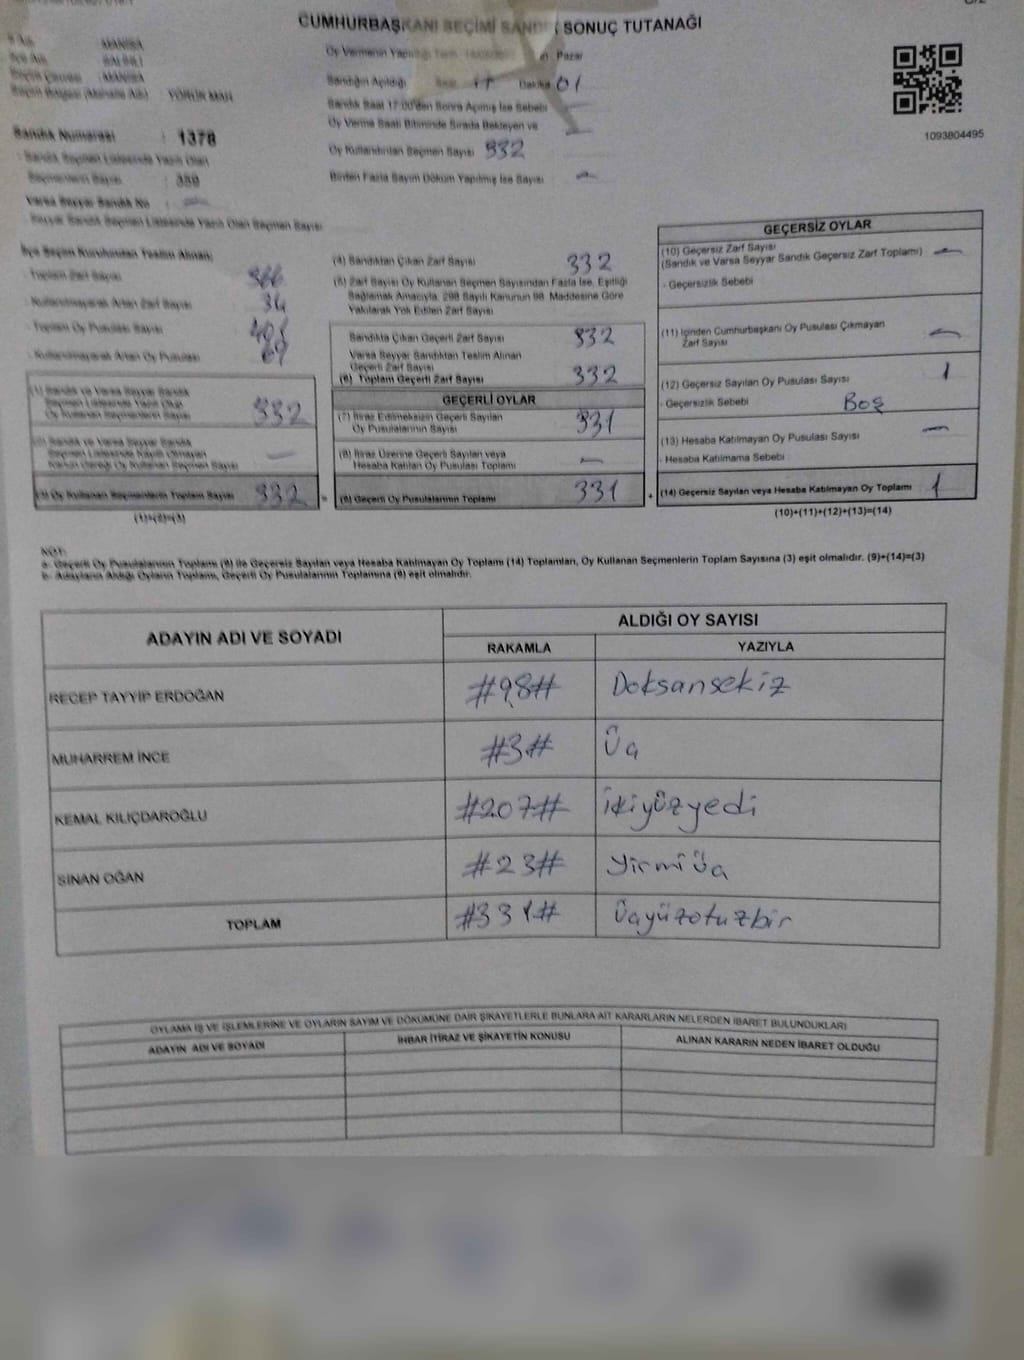 CUMHURBAŞKANI SEÇİMİ SANDIK SONUÇ TUTANAĞI
İl Adı MANİSA
İlçe Adı SALİHLİ
Seçim Çevresi : MANİSA
Seçim Bölgesi (Mahalle Adı) YÖRÜK MAH.
Sandık Numarası : 1378
Sandık Seçmen Listesinde Yazılı Olan
Seçmenlerin Sayısı
Varsa Seyyar Sandık No : -
Seyyar Sandık Seçmen Listesinde Yazılı Olan Seçmen Sayısı
Oy Vermenin Yapıldığı Pazar
Sandığın Açıldığı Saat 17 Dakika 01
Sandık Saat 17:00'den Sonra Açımış İse Sebebi
Oy Verme Saati Bitiminde Sırada Bekleyen ve -
Oy Kullandırılan Seçmen Sayısı 332
Birden Fazla Sayım Döküm Yapılmış İse Sayısı -
1093804495
İlçe Seçim Kurulundan Teslim Alınan;
Toplam Zarf Sayısı 366
Kullanılmayarak Artan Zarf Sayısı 34
Toplam Oy Pusulası Sayısı 401
Kullanılmayarak Artan Oy Pusulası 69
(1) Sandık ve Varsa Seyyar Sandık
Seçmen Listesinde Yazılı Olup
Oy Kullanan Seçmenlerin Sayısı 332
(2) Sandık ve Varsa Seyyar Sandık
Seçmen Listesinde Kayıtlı Olmayan
Kanun Gereği Oy Kullanan Seçmen Sayısı -
(3) Oy Kullanan Seçmenlerin Toplam Sayısı 332 =
(1)+(2)=(3)
(4) Sandıktan Çıkan Zarf Sayısı 332
(5) Zarf Sayısı Oy Kullanan Seçmen Sayısından Fazla İse, Eşitliği
Sağlamak Amacıyla, 298 Sayılı Kanunun 98. Maddesine Göre
Yakılarak Yok Edilen Zarf Sayısı
Sandıkta Çıkan Geçerli Zarf Sayısı 332
Varsa Seyyar Sandıktan Teslim Alınan
Geçerli Zarf Sayısı
(6) Toplam Geçerli Zarf Sayısı 332
GEÇERLİ OYLAR
(7) İtiraz Edilmeksizin Geçerli Sayılan
Oy Pusulalarının Sayısı 331
(8) İtiraz Üzerine Geçerli Sayılan veya
Hesaba Katılan Oy Pusulası Toplamı -
(9) Geçerli Oy Pusulalarının Toplamı 331 +
GEÇERSİZ OYLAR
(10) Geçersiz Zarf Sayısı
(Sandık ve Varsa Seyyar Sandık Geçersiz Zarf Toplamı) -
- Geçersizlik Sebebi
(11) İçinden Cumhurbaşkanı Oy Pusulası Çıkmayan
Zarf Sayısı -
(12) Geçersiz Sayılan Oy Pusulası Sayısı 1
- Geçersizlik Sebebi Boş
(13) Hesaba Katılmayan Oy Pusulası Sayısı -
- Hesaba Katılmama Sebebi
(14) Geçersiz Sayılan veya Hesaba Katılmayan Oy Toplamı 1
(10)+(11)+(12)+(13)=(14)
NOT:
a- Geçerli Oy Pusulalarının Toplamı (9) ile Geçersiz Sayılan veya Hesaba Katılmayan Oy Toplamı (14) Toplamları, Oy Kullanan Seçmenlerin Toplam Sayısına (3) eşit olmalıdır. (9)+(14)=(3)
b- Adayların Aldığı Oyların Toplamı, Geçerli Oy Pusulalarının Toplamına (9) eşit olmalıdır.
ADAYIN ADI VE SOYADI ALDIĞI OY SAYISI
RAKAMLA YAZIYLA
RECEP TAYYİP ERDOĞAN #98# Doksansekiz
MUHARREM İNCE #3# Üç
KEMAL KILIÇDAROĞLU #207# İkiyüzyedi
SİNAN OĞAN #23# Yirmiüç
TOPLAM #331# Üçyüzotuzbir
OYLAMA İŞ VE İŞLEMLERİNE VE OYLARIN SAYIM VE DÖKÜMÜNE DAİR ŞİKAYETLERLE BUNLARA AİT KARARLARIN NELERDEN İBARET BULUNDUKLARI
ADAYIN ADI VE SOYADI İHBAR İTİRAZ VE ŞİKAYETİN KONUSU ALINAN KARARIN NEDEN İBARET OLDUĞU